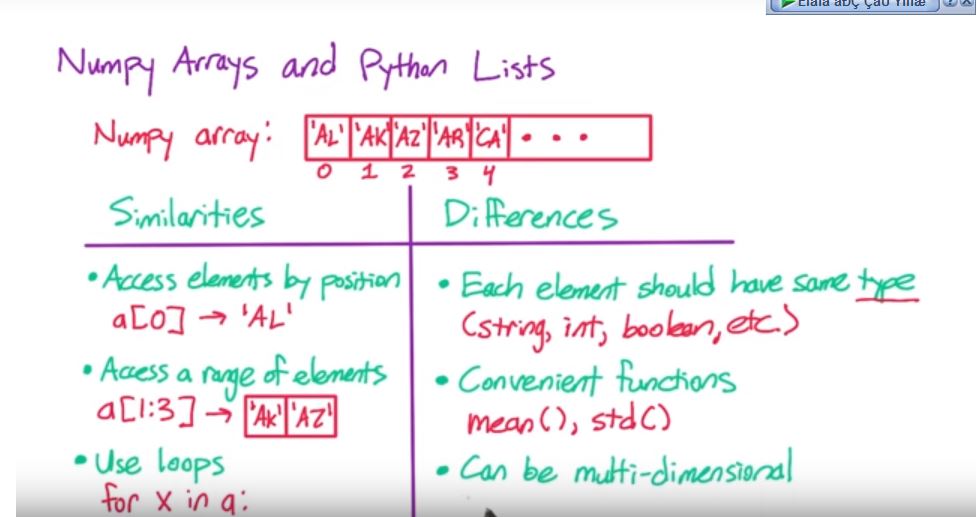 Numpy Arrays and Python Lists
Numpy array: 'AL' 'AK' 'AZ' 'AR' 'CA' • • •
0 1 2 3 4
Similarities
• Access elements by position
a[0] → 'AL'
• Access a range of elements
a[1:3] → 'AK' 'AZ'
• Use loops
for x in a:
Differences
• Each element should have same type
(string, int, boolean, etc.)
• Convenient functions
mean(), std()
• Can be multi-dimensional